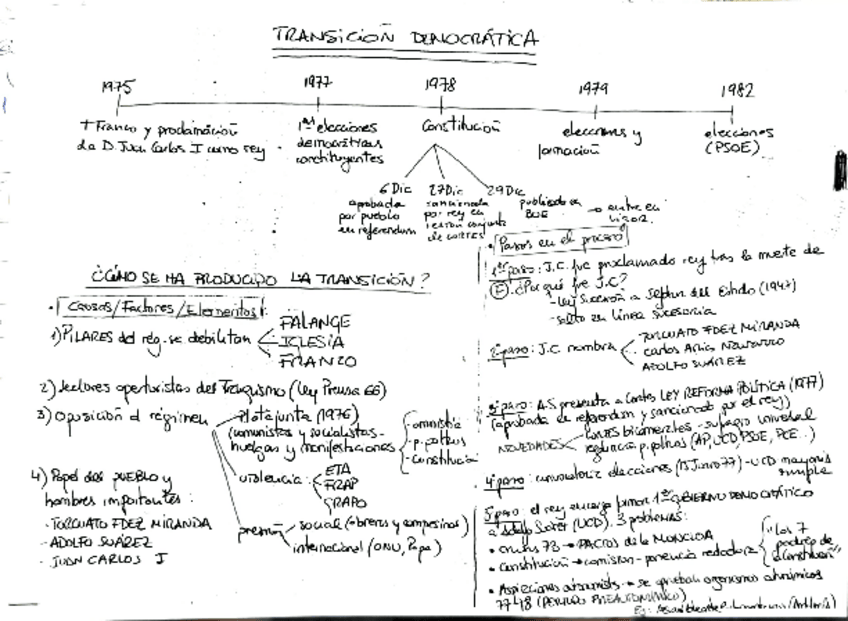 TRANSICIÓN DEMOCRÁTICA
1975
1977
1978
1979
1982
+ Franco y proclamación
de D. Juan Carlos I como rey
1as elecciones
democráticas
constituyentes
Constitución
elecciones y
formación
elecciones
(PSOE)
6 Dic
aprobada
por pueblo
en referendum
27 Dic
sancionada
por rey en
sesión conjunta
de CORTES
29 Dic
publicada en
BOE
→ entra en
vigor.
¿CÓMO SE HA PRODUCIDO LA TRANSICIÓN?
• Causas/Factores/Elementos:
1) PILARES del rég. se debilitan
FALANGE
IGLESIA
FRANCO
2) Sectores aperturistas del Franquismo (Ley Prensa 66)
3) Oposición al régimen
Platajunta (1976)
(comunistas y socialistas-
huelgas y manifestaciones
- amnistía
- p. políticos
- constitución
violencia:
ETA
FRAP
GRAPO
presión
social (obreros y campesinos)
internacional (ONU, Papa)
4) Papel del PUEBLO y
hombres importantes:
· TORCUATO FDEZ MIRANDA
· ADOLFO SUÁREZ
· JUAN CARLOS I
• Pasos en el proceso
1er paso: J.C. fue proclamado rey tras la muerte de
F. ¿Por qué fue J.C?
- Ley Sucesión a Jefatura del Estado (1947)
- salto en línea sucesoria
2º paso: J.C. nombra
TORCUATO FDEZ MIRANDA
Carlos Arias NAVARRO
ADOLFO SUÁREZ
3º paso: A.S presenta a Cortes LEY REFORMA POLÍTICA (1977)
(aprobada en referendum y sancionada por el rey)
NOVEDADES
CORTES bicamerales - sufragio universal
legaliza p. políticos (AP, UCD, PSOE, PCE...)
4º paso: convocatoria elecciones (15 Junio 77) - UCD mayoría
simple
5º paso: el rey encarga formar 1er GOBIERNO DEMOCRÁTICO
a Adolfo Suárez (UCD). 3 problemas:
• crisis 73 → PACTOS de la MONCLOA
• Constitución → comisión - ponencia redactora
"los 7
padres de
la Constitución"
• Aspiraciones autonomistas → se aprueban organismos autonómicos
77-78 (PERIODO PREAUTONÓMICO)
Ej: